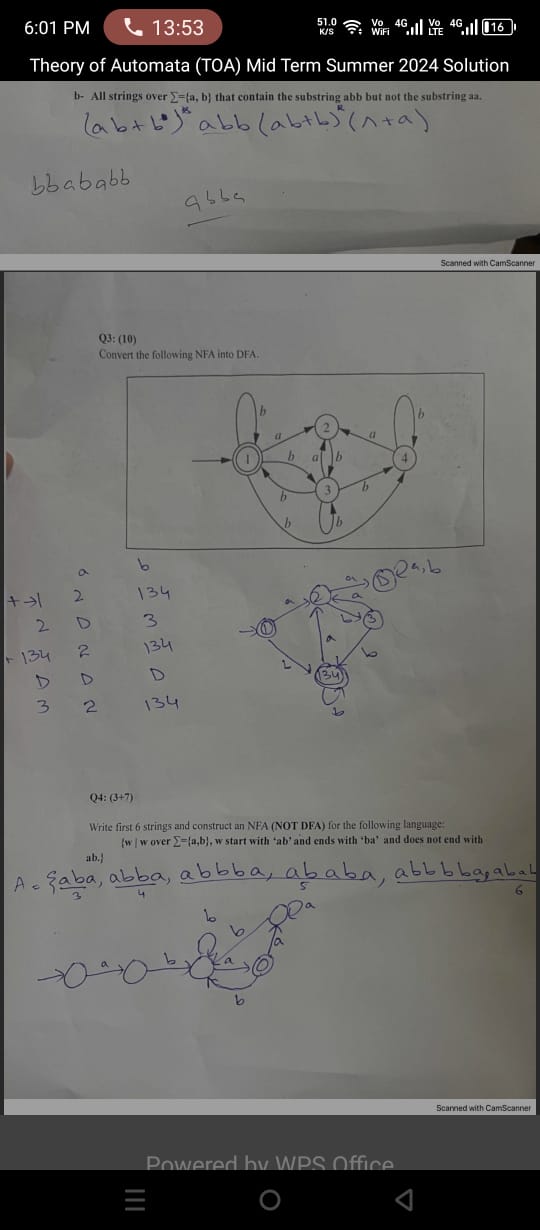 6:01 PM 13:53 51.0 K/S Vo WiFi 4G Vo LTE 4G 16
Theory of Automata (TOA) Mid Term Summer 2024 Solution
b- All strings over ∑={a, b} that contain the substring abb but not the substring aa.
(ab+b)* abb (ab+b)* (^+a)
bbababb
abba
Scanned with CamScanner
Q3: (10)
Convert the following NFA into DFA.
b
b
a
2
a
1
b
a
b
4
b
3
b
b
b
a b
+→1 2 134
2 D 3
+ 134 2 134
D D D
3 2 134
a
2
a
D
a,b
a
1
b
3
a
b
b
134
b
Q4: (3+7)
Write first 6 strings and construct an NFA (NOT DFA) for the following language:
{w | w over ∑={a,b}, w start with ‘ab’ and ends with ‘ba’ and does not end with
ab.}
A = {aba, abba, abbba, ababa, abbbba, abab
3 4 5 6
b
b
a
a
a
b
a
b
Scanned with CamScanner
Powered by WPS Office